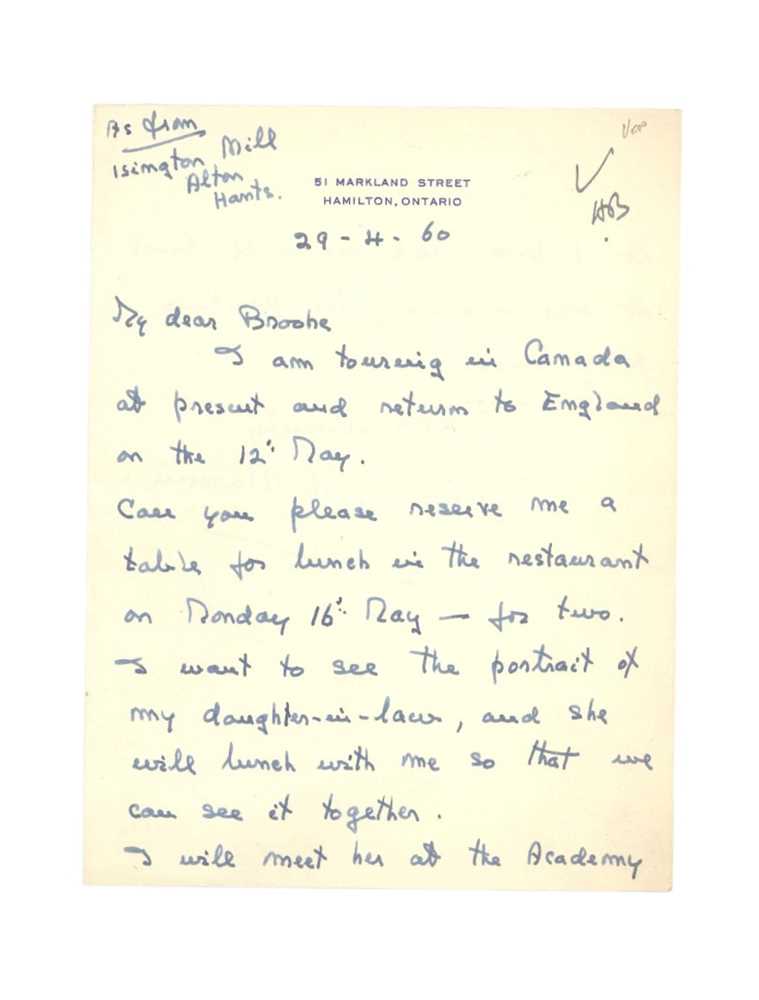 As from
Isington Mill
Alton
Hants.
51 MARKLAND STREET
HAMILTON, ONTARIO
HB
29-4-60
My dear Brooke
I am touring in Canada
at present and return to England
on the 12th May.
Can you please reserve me a
table for lunch in the restaurant
on Monday 16th May — for two.
I want to see the portrait of
my daughter-in-law, and she
will lunch with me so that we
can see it together.
I will meet her at the Academy